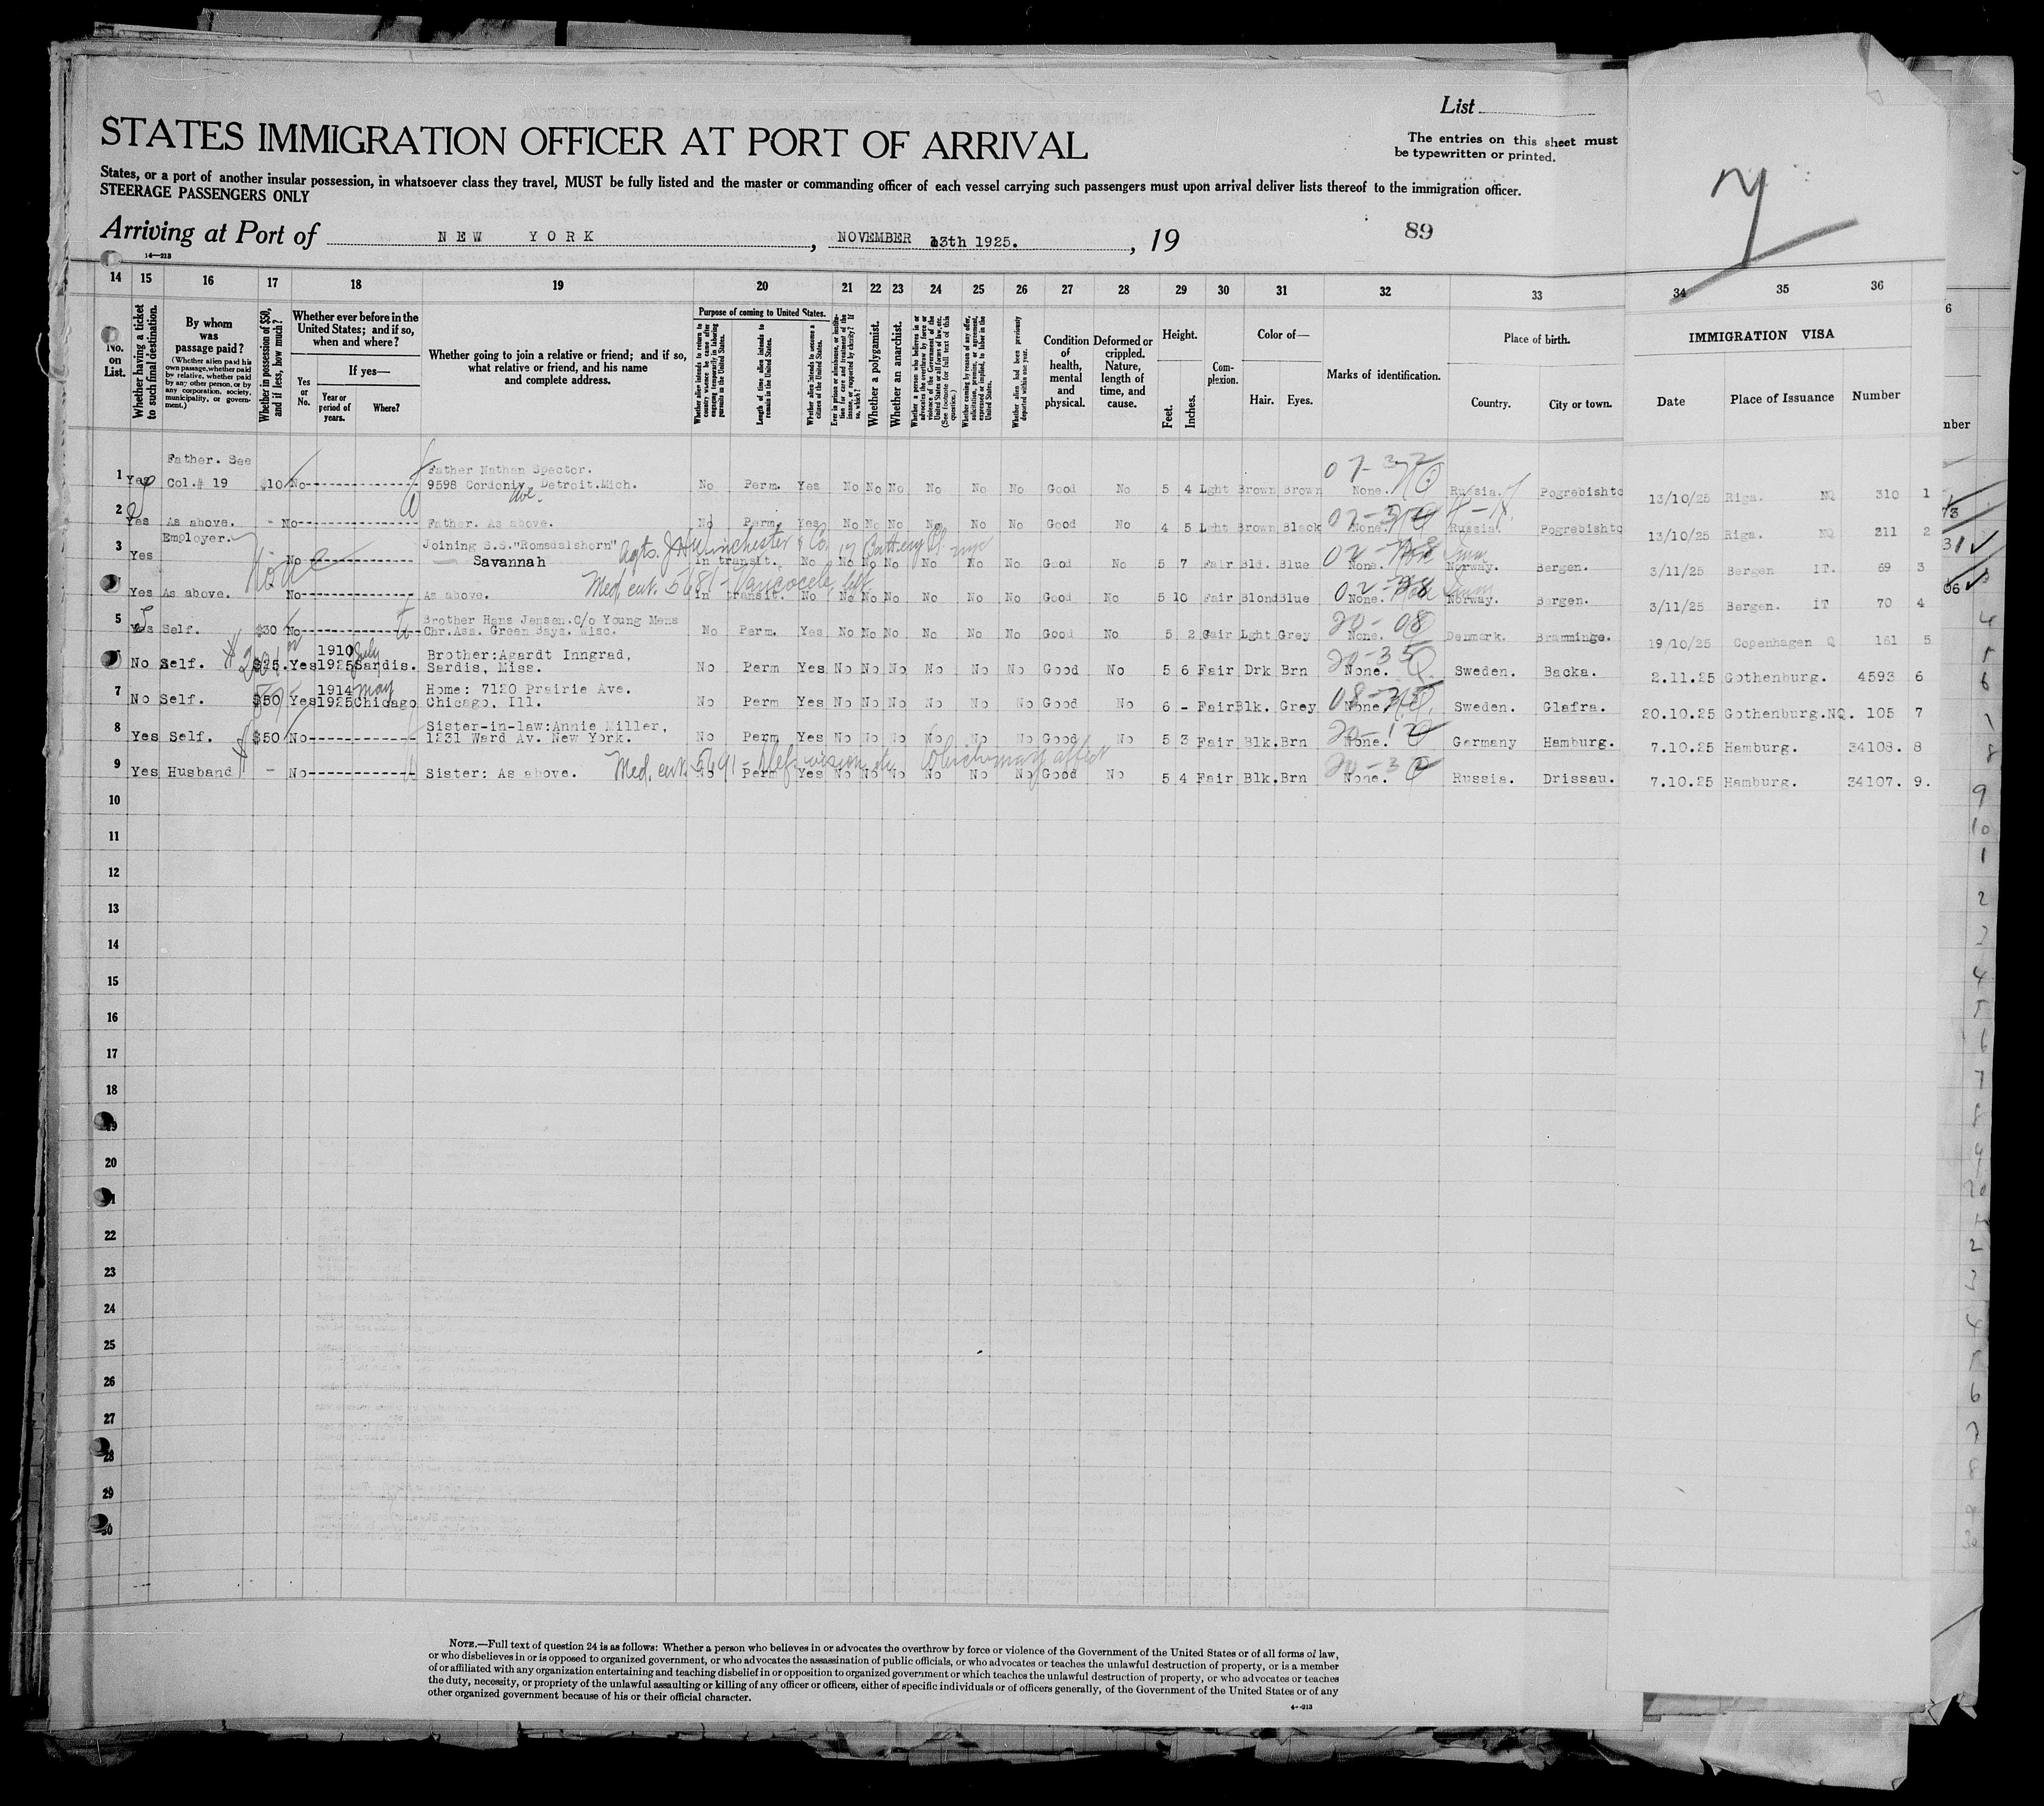 List
STATES IMMIGRATION OFFICER AT PORT OF ARRIVAL
The entries on this sheet must
be typewritten or printed.
States, or a port of another insular possession, in whatsoever class they travel, MUST be fully listed and the master or commanding officer of each vessel carrying such passengers must upon arrival deliver lists thereof to the immigration officer.
STEERAGE PASSENGERS ONLY
Arriving at Port of NEW YORK, NOVEMBER 13th 1925., 19 89
14—213
14 15 16 17 18 19 20 21 22 23 24 25 26 27 28 29 30 31 32 33 34 35 36
No. on List.
Whether having a ticket to such final destination.
By whom was passage paid?
(Whether alien paid his own passage, whether paid by relative, whether paid by any other person, or by any corporation, society, municipality, or government.)
Whether in possession of $50, and if less, how much?
Whether ever before in the United States; and if so, when and where?
Yes or No.
If yes—
Year or period of years.
Where?
Whether going to join a relative or friend; and if so, what relative or friend, and his name and complete address.
Purpose of coming to United States.
Whether alien intends to return to country whence he came after engaging temporarily in laboring pursuits in the United States.
Length of time alien intends to remain in the United States.
Whether alien intends to become a citizen of the United States.
Ever in prison or almshouse, or institution for care and treatment of the insane, or supported by charity? If so, which?
Whether a polygamist.
Whether an anarchist.
Whether a person who believes in or advocates the overthrow by force or violence of the Government of the United States or all forms of law, etc. (See footnote for full text of this question.)
Whether coming by reason of any offer, solicitation, promise, or agreement, expressed or implied, to labor in the United States.
Whether alien had been previously deported within one year.
Condition of health, mental and physical.
Deformed or crippled. Nature, length of time, and cause.
Height.
Feet. Inches.
Complexion.
Color of—
Hair. Eyes.
Marks of identification.
Place of birth.
Country. City or town.
IMMIGRATION VISA
Date Place of Issuance Number
1 Yes Father. See Col.# 19 $10 No Father Nathan Spector. 9598 Cordoniz Ave. Detroit.Mich. No Perm. Yes No No No No No No Good No 5 4 Lght Brown Brown None. Russia. Pogrebishto 13/10/25 Riga. NQ 310 1
2 Yes As above. - No Father. As above. No Perm. Yes No No No No No No Good No 4 5 Lght Brown Black None. Russia. Pogrebishto 13/10/25 Riga. NQ 311 2
3 Yes Employer. No Joining S.S."Romsdalshorn" Agts. J H Winchester & Co. 17 Battery Pl. nyc Savannah In transit. No No No No No No No Good No 5 7 Fair Bld. Blue None. Norway. Bergen. 3/11/25 Bergen IT. 69 3
Yes As above. No As above. Med. cert. 5681 - Varicocele, left In transit. No No No No No No No Good No 5 10 Fair Blond Blue None. Norway. Bergen. 3/11/25 Bergen. IT 70 4
5 Yes Self. $30 No Brother Hans Jensen.C/o Young Mens Chr.Ass. Green Bays. Wisc. No Perm. Yes No No No No No No Good No 5 2 Gair Lght Grey None. 20-08 Denmark. Bramminge. 19/10/25 Copenhagen Q 161 5
No Self. $25. Yes 1910 1925 July Sardis. Brother:Agardt Inngrad, Sardis, Miss. No Perm Yes No No No No No No Good No 5 6 Fair Drk Brn None. Sweden. Backa. 2.11.25 Gothenburg. 4593 6
7 No Self. $50 Yes 1914 1925 May Chicago Home: 7120 Prairie Ave. Chicago, Ill. No Perm Yes No No No No No No Good No 6 - Fair Blk. Grey None. Sweden. Glafra. 20.10.25 Gothenburg.NQ. 105 7
8 Yes Self. $50 No Sister-in-law:Annie Miller, 1231 Ward Av. New York. No Perm Yes No No No No No No Good No 5 3 Fair Blk. Brn None. Germany Hamburg. 7.10.25 Hamburg. 34108. 8
9 Yes Husband - No Sister: As above. Med. cert. 5691 - Def. vision etc. which may affect No Perm Yes No No No No No No Good No 5 4 Fair Blk. Brn None. Russia. Drissau. 7.10.25 Hamburg. 34107. 9.
10
11
12
13
14
15
16
17
18
19
20
21
22
23
24
25
26
27
28
29
30
NOTE.—Full text of question 24 is as follows: Whether a person who believes in or advocates the overthrow by force or violence of the Government of the United States or of all forms of law,
or who disbelieves in or is opposed to organized government, or who advocates the assassination of public officials, or who advocates or teaches the unlawful destruction of property, or is a member
of or affiliated with any organization entertaining and teaching disbelief in or opposition to organized government or which teaches the unlawful destruction of property, or who advocates or teaches
the duty, necessity, or propriety of the unlawful assaulting or killing of any officer or officers, either of specific individuals or of officers generally, of the Government of the United States or of any
other organized government because of his or their official character.
4—213